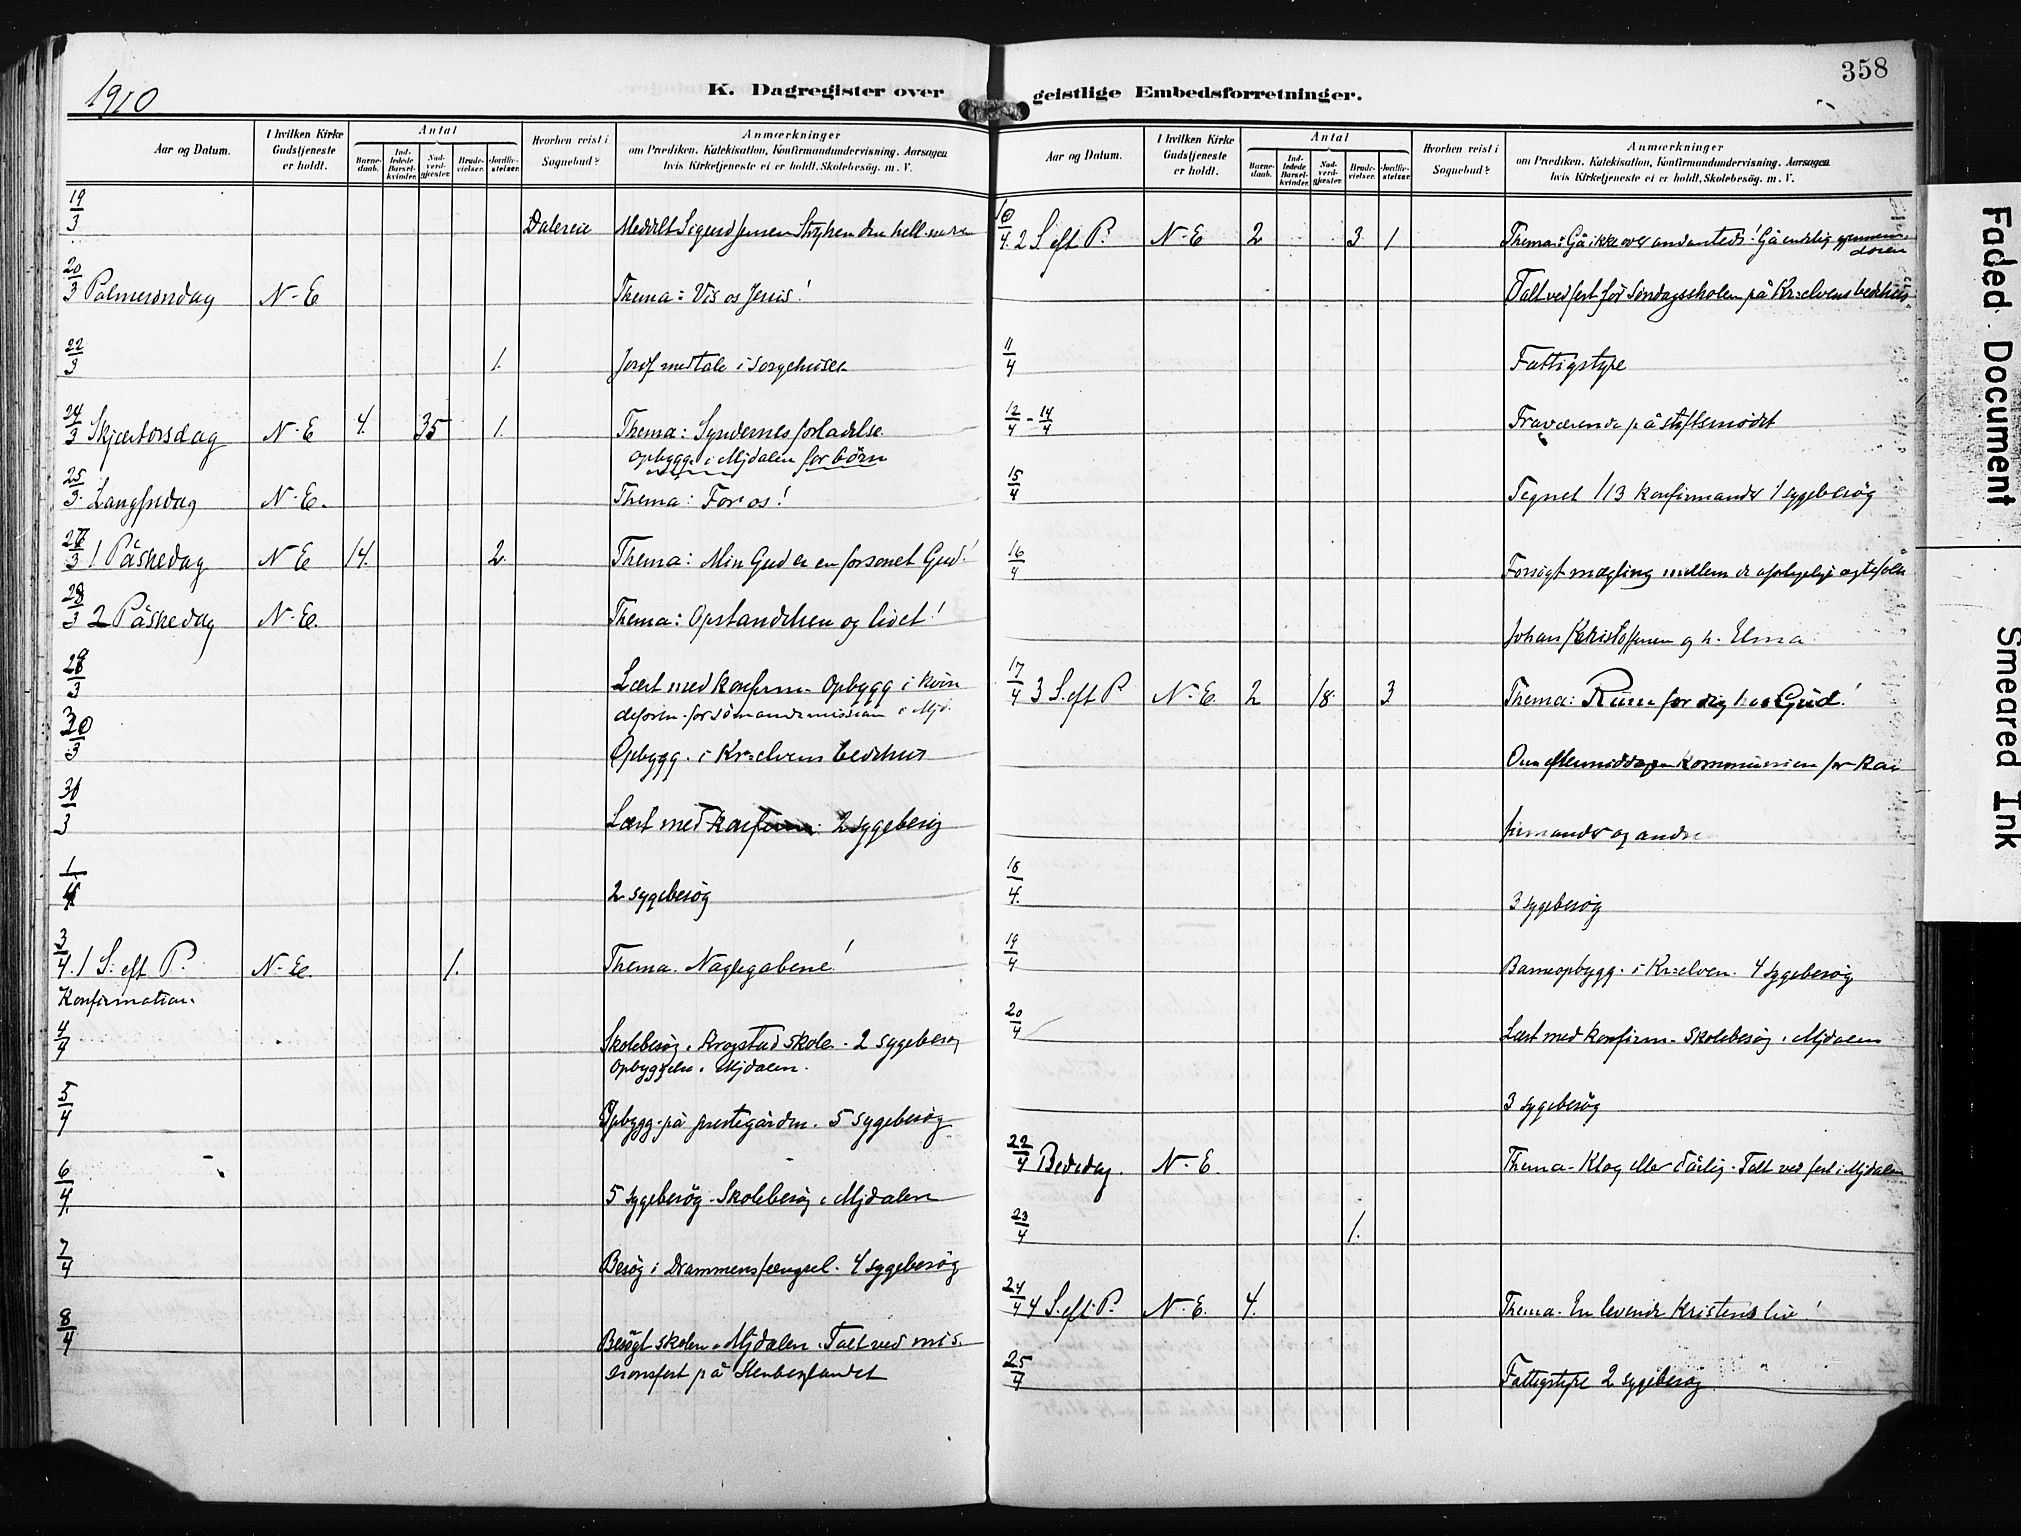 1910
K. Dagregister over geistlige Embedsforretninger.
358
Aar og Datum.
I hvilken Kirke Gudstjeneste er holdt.
Antal
Barnedaab.
Indledede Barselkvinder.
Nadverdgjester.
Brudevielser.
Jordfæstelser.
Hvorhen reist i Sognebud?
Anmærkninger
om Prædiken, Katekisation, Konfirmandundervisning, Aarsagen
hvis Kirketjeneste ei er holdt, Skolebesög. m. V.
19/3 Dalereie Meddelt Sigurd Jensen den hell.
20/3 Palmesøndag N-E Thema: Vis os Jesus!
22/3 1. Jordf med tale i sørgehuset
24/3 Skjærtorsdag N-E 4. 35 1. Thema: Syndernes forladelse
opbygg. i Mjdalen for børn
25/3 Langfredag N-E. Thema: For os!
27/3 1 Påskedag N-E 14. 2. Thema: Min Gud er en forsonet Gud!
28/3 2 Påskedag N-E. Thema: Opstandelsen og livet!
29/3 Læst med konfirm. Opbygg i kvin
deforen. for sømandsmission i Mjd.
30/3 Opbygg. i Kr=elvens bedehus
31/3 Læst med konfirm. 2 sygebesøg
1/4 2 sygebesøg
3/4. 1 S. eft P. N-E. 1. Thema. Naglegabene!
Konfirmation.
4/4 Skolebesøg i Krogstad skole. 2 sygebesøg
Opbyggelse i Mjdalen.
5/4 Opbygg. på prestegården. 5 sygebesøg
6/4. 5 sygebesøg. Skolebesøg i Mjdalen
7/4 Besøg i Drammens fængsel. 4 sygebesøg
8/4 Besøgt skolen i Mjdalen. Talt ved mis-
sionsfest på Stenberglandet
Aar og Datum.
I hvilken Kirke Gudstjeneste er holdt.
Antal
Barnedaab.
Indledede Barselkvinder.
Nadverdgjester.
Brudevielser.
Jordfæstelser.
Hvorhen reist i Sognebud?
Anmærkninger
om Prædiken, Katekisation, Konfirmandundervisning, Aarsagen
hvis Kirketjeneste ei er holdt, Skolebesög. m. V.
10/4. 2 S. eft P. N-E 2 3 1 Thema: Gå ikke over andensteds! Gå endelig gjennem
døren
Talt ved fest for søndagsskolen på Kr=elvens bedehus
11/4 Fattigstyre
12/4 - 14/4 Fraværende på stiftsmødet
15/4 Tegnet 113 konfirmander 1 sygebesøg
16/4 Forsøgt mægling mellem de
Johan Kristoffersen og h. Elma
17/4 3 S. eft P N-E. 2 18 3 Thema: Rum for dig hos Gud!
Om eftermiddagen kommunion for kon
firmander og andre
18/4. 3 sygebesøg
19/4 Barneopbygg. i Kr=elven. 4 sygebesøg
20/4 Læst med konfirm. Skolebesøg i Mjdalen
3 sygebesøg
22/4 Bededag. N-E. Thema. Klog eller dårlig. Talt ved fest i Mjdalen
23/4 1.
24/4 4 S. eft. P. N-E. 4. Thema. En levende kristens liv!
25/4 Fattigstyre 2 sygebesøg
Faded Document
Smeared Ink